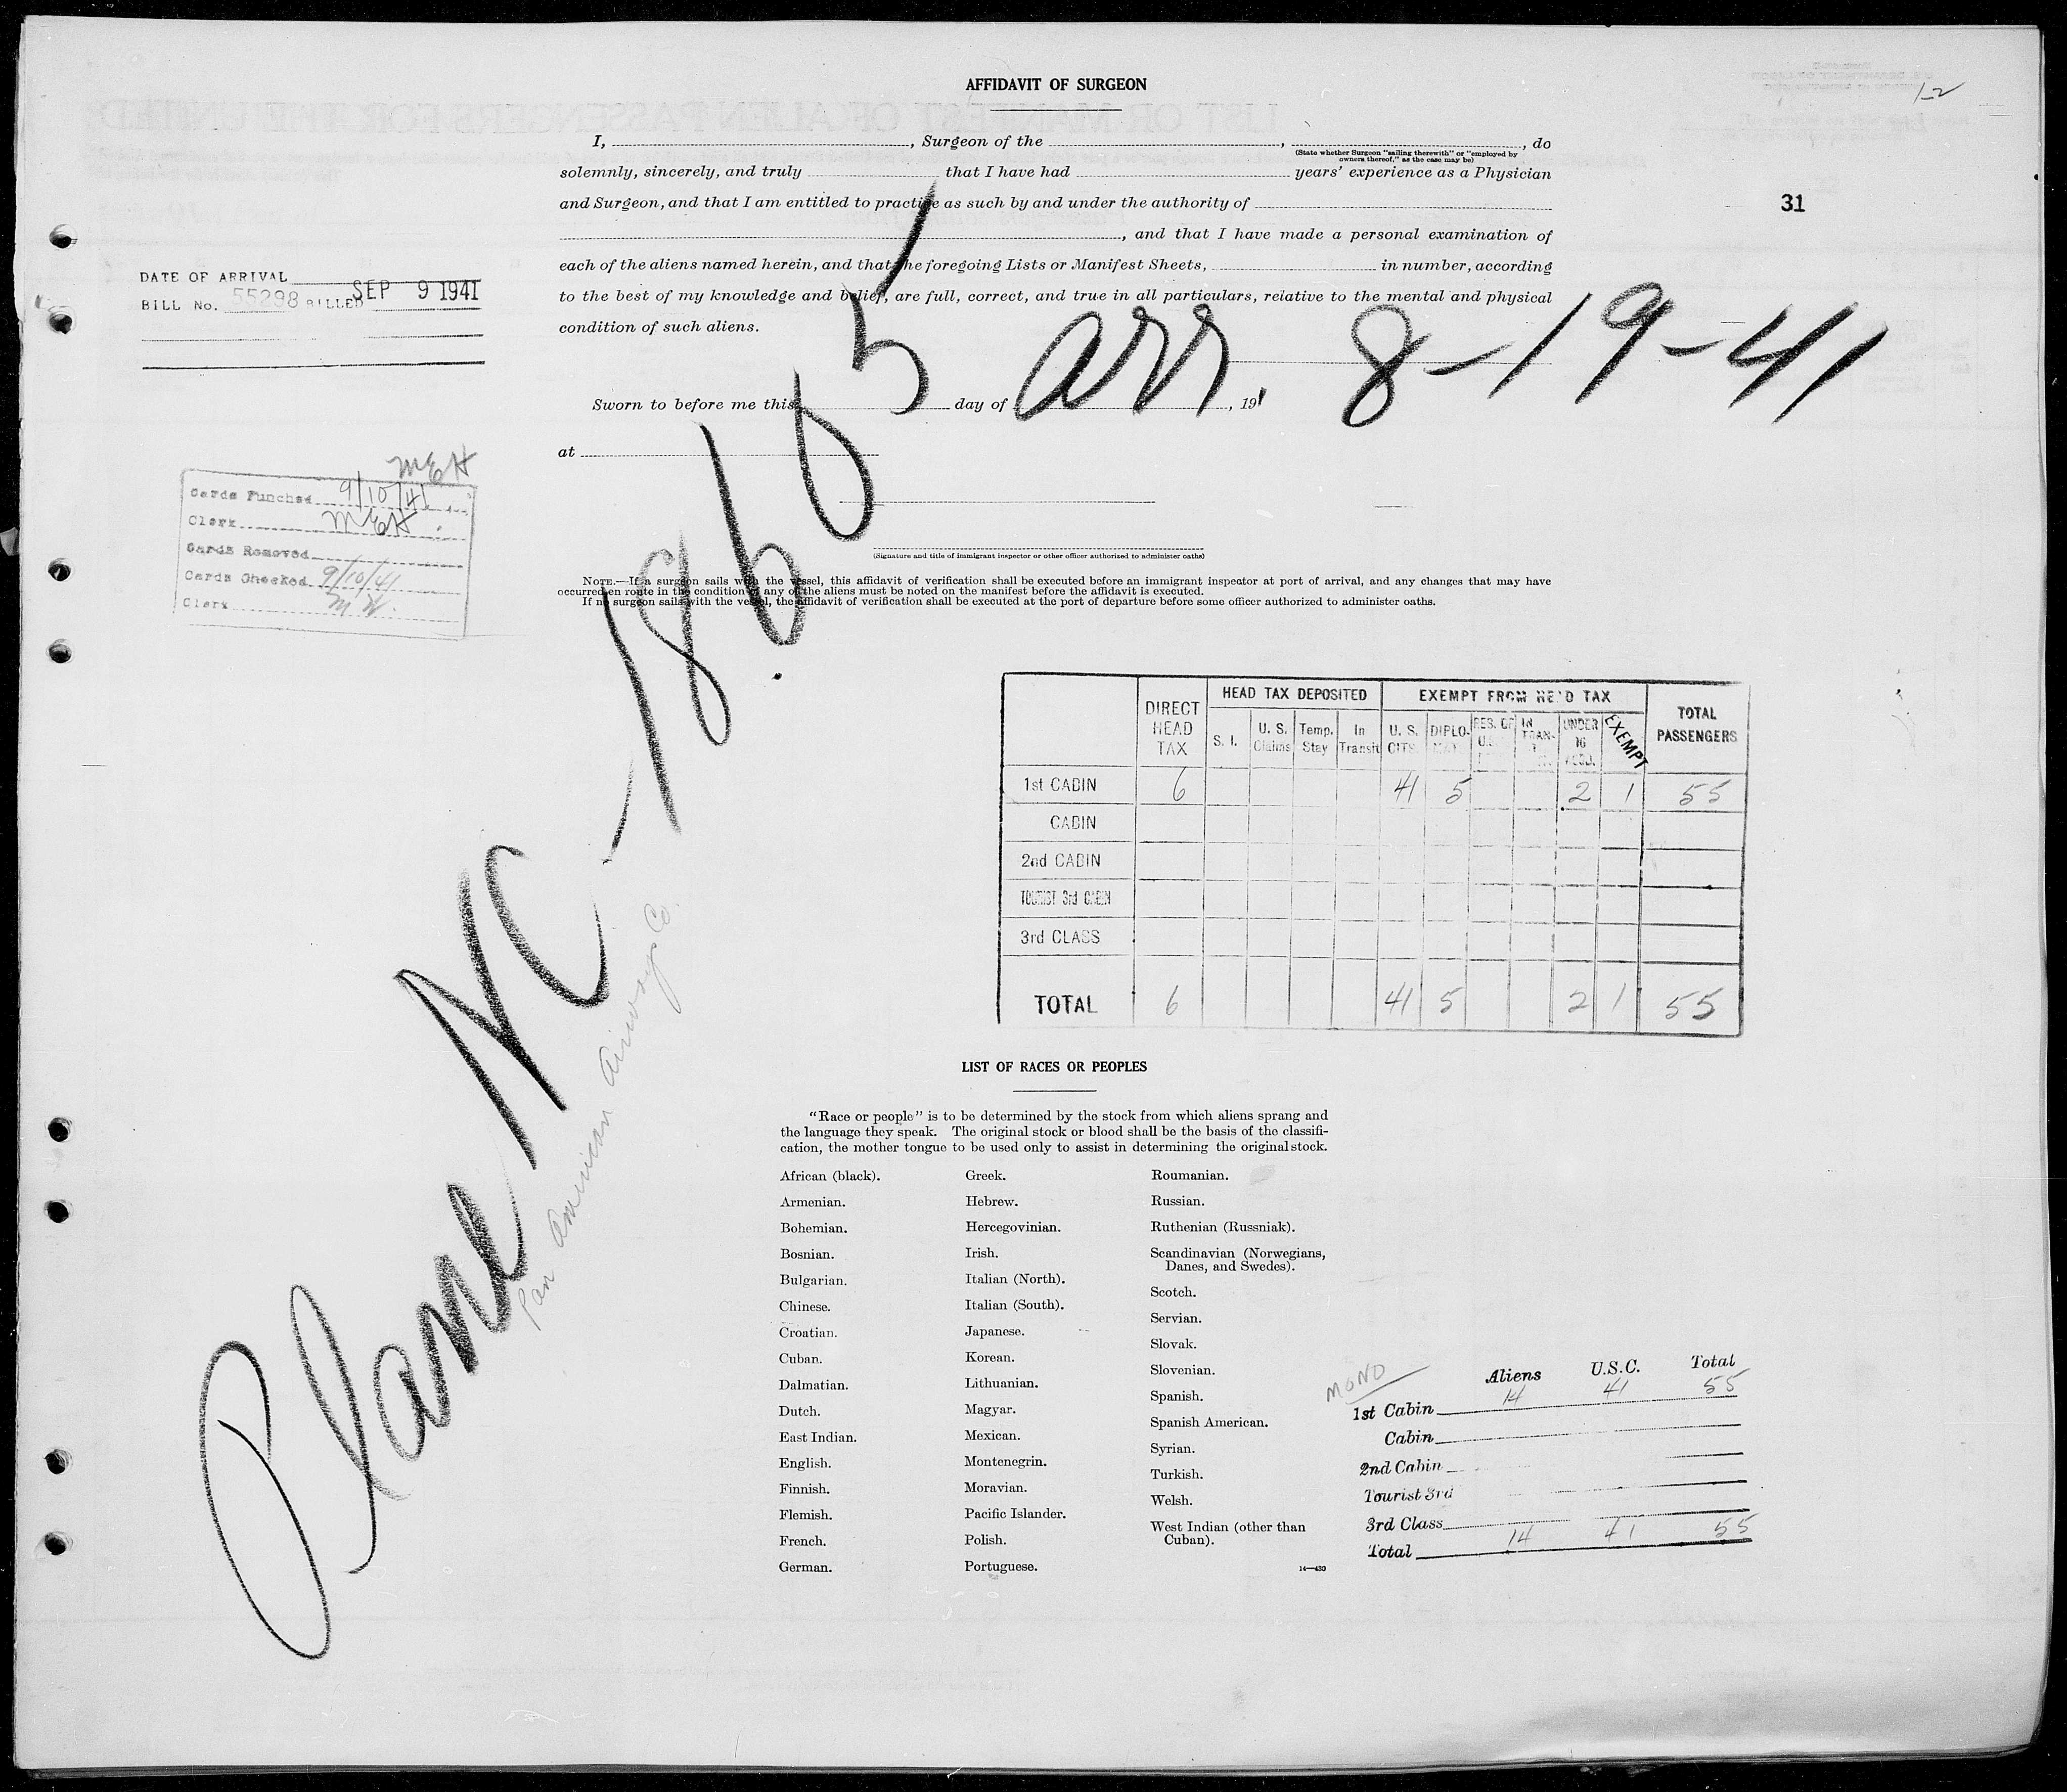 AFFIDAVIT OF SURGEON
12
I, , Surgeon of the , , do
(State whether Surgeon "sailing therewith" or "employed by
owners thereof," as the case may be)
solemnly, sincerely, and truly that I have had years' experience as a Physician
and Surgeon, and that I am entitled to practice as such by and under the authority of
31
, and that I have made a personal examination of
each of the aliens named herein, and that the foregoing Lists or Manifest Sheets, in number, according
to the best of my knowledge and belief, are full, correct, and true in all particulars, relative to the mental and physical
condition of such aliens.
DATE OF ARRIVAL
BILL No. 55298 BILLED SEP 9 1941
arr 8-19-41
Sworn to before me this day of , 191
at
(Signature and title of immigrant inspector or other officer authorized to administer oaths)
MEH
Cards Punched 9/10/41
Clerk MEH
Cards Removed
Cards Checked 9/10/41
Clerk M W.
NOTE.—If a surgeon sails with the vessel, this affidavit of verification shall be executed before an immigrant inspector at port of arrival, and any changes that may have
occurred en route in the condition of any of the aliens must be noted on the manifest before the affidavit is executed.
If no surgeon sails with the vessel, the affidavit of verification shall be executed at the port of departure before some officer authorized to administer oaths.
Plane NC-18605
Pan American Airways Co.
DIRECT HEAD TAX
HEAD TAX DEPOSITED
EXEMPT FROM HEAD TAX
TOTAL PASSENGERS
S. I. U. S. Claims Temp. Stay In Transit U. S. CITS. DIPLO- RES. OF U.S. IN TRAN- UNDER 16 EXEMPT
1st CABIN 6 41 5 2 1 55
CABIN
2nd CABIN
TOURIST 3rd CABIN
3rd CLASS
TOTAL 6 41 5 2 1 55
LIST OF RACES OR PEOPLES
"Race or people" is to be determined by the stock from which aliens sprang and
the language they speak. The original stock or blood shall be the basis of the classifi-
cation, the mother tongue to be used only to assist in determining the original stock.
African (black).
Armenian.
Bohemian.
Bosnian.
Bulgarian.
Chinese.
Croatian.
Cuban.
Dalmatian.
Dutch.
East Indian.
English.
Finnish.
Flemish.
French.
German.
Greek.
Hebrew.
Hercegovinian.
Irish.
Italian (North).
Italian (South).
Japanese.
Korean.
Lithuanian.
Magyar.
Mexican.
Montenegrin.
Moravian.
Pacific Islander.
Polish.
Portuguese.
Roumanian.
Russian.
Ruthenian (Russniak).
Scandinavian (Norwegians,
Danes, and Swedes).
Scotch.
Servian.
Slovak.
Slovenian.
Spanish.
Spanish American.
Syrian.
Turkish.
Welsh.
West Indian (other than
Cuban).
14—430
MONO
Aliens U.S.C. Total
1st Cabin 14 41 55
Cabin
2nd Cabin
Tourist 3rd
3rd Class
Total 14 41 55